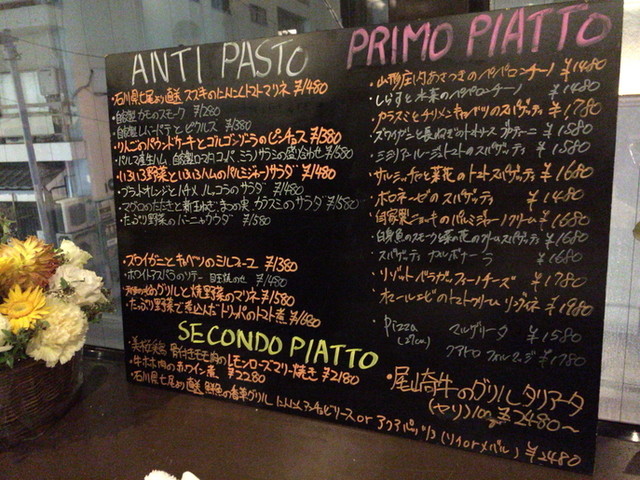 ANTI PASTO
・石川県七尾より直送 スズキのにんにくトマトマリネ ¥1480
自家製カモのスモーク ¥1280
自家製レバーパテとピクルス ¥1380
・りんごのパウンドケーキとゴルゴンゾーラのピンチョス ¥1380
・パルマ産生ハム、自家製 コッパ、ミラノサラミの盛り合わせ ¥1580
・いろいろ野菜と ハムのパルミジャーノサラダ ¥1480
・ブラッドオレンジと のサラダ ¥1480
・マグロのたたきと新玉ねぎ、まつの実 のサラダ ¥1580
・たっぷり野菜のバーニャカウダ ¥1580
・ズワイガニとキャベツのミルフィーユ ¥1380
・ホワイトアスパラのソテー のせ ¥1480
グリルと焼野菜のマリネ ¥1580
・たっぷり野菜で煮込んだトリッパのトマト煮 ¥1680
SECONDO PIATTO
骨付きモモ肉のレモンローズマリー焼き ¥2180
・牛ホホ肉の赤ワイン煮 ¥2280
・石川県七尾より直送 鮮魚の香草グリル にんにくアンチョビソース or アクアパッツァ (ソイ or メバル) ¥2480
PRIMO PIATTO
・山形庄内あさつきのペペロンチーノ ¥1480
・しらすと水菜のペペロンチーノ ¥1480
・カラスミとチリメンキャベツのスパゲッティ ¥1,780
・ズワイガニと長ねぎのトマトソース ¥1580
・シシリアンルージュトマトのスパゲッティ ¥1580
・サルシッチャと菜花のトマトスパゲッティ ¥1680
・ボロネーゼのスパゲッティ ¥1480
・自家製ニョッキのパルミジャーノクリーム ¥1680
・白身魚のスモークと菜の花のクリームスパゲッティ ¥1680
・スパゲッティ カルボナーラ ¥1680
・リゾット フォーチーズ ¥1780
・オマールエビのトマトクリーム リングイネ ¥1980
・Pizza マルゲリータ ¥1580
クアトロフォルマッジ ¥1780
・尾崎牛のグリル タリアータ
(ヤリ) 100g ¥2480～